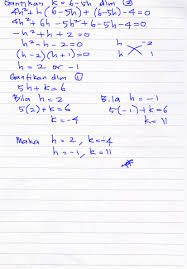 Gantikan k = 6-5h dlm ②
4h² + h(6-5h) + (6-5h) - 4 = 0
4h² + 6h - 5h² + 6 - 5h - 4 = 0
-h² + h + 2 = 0
h² - h - 2 = 0
(h-2)(h+1) = 0
h = 2 or -1
h -2
h 1
Gantikan dlm ①
5h + k = 6
Bila h = 2 Bila h = -1
5(2) + k = 6 5(-1) + k = 6
k = -4 k = 11
Maka h = 2, k = -4
h = -1, k = 11